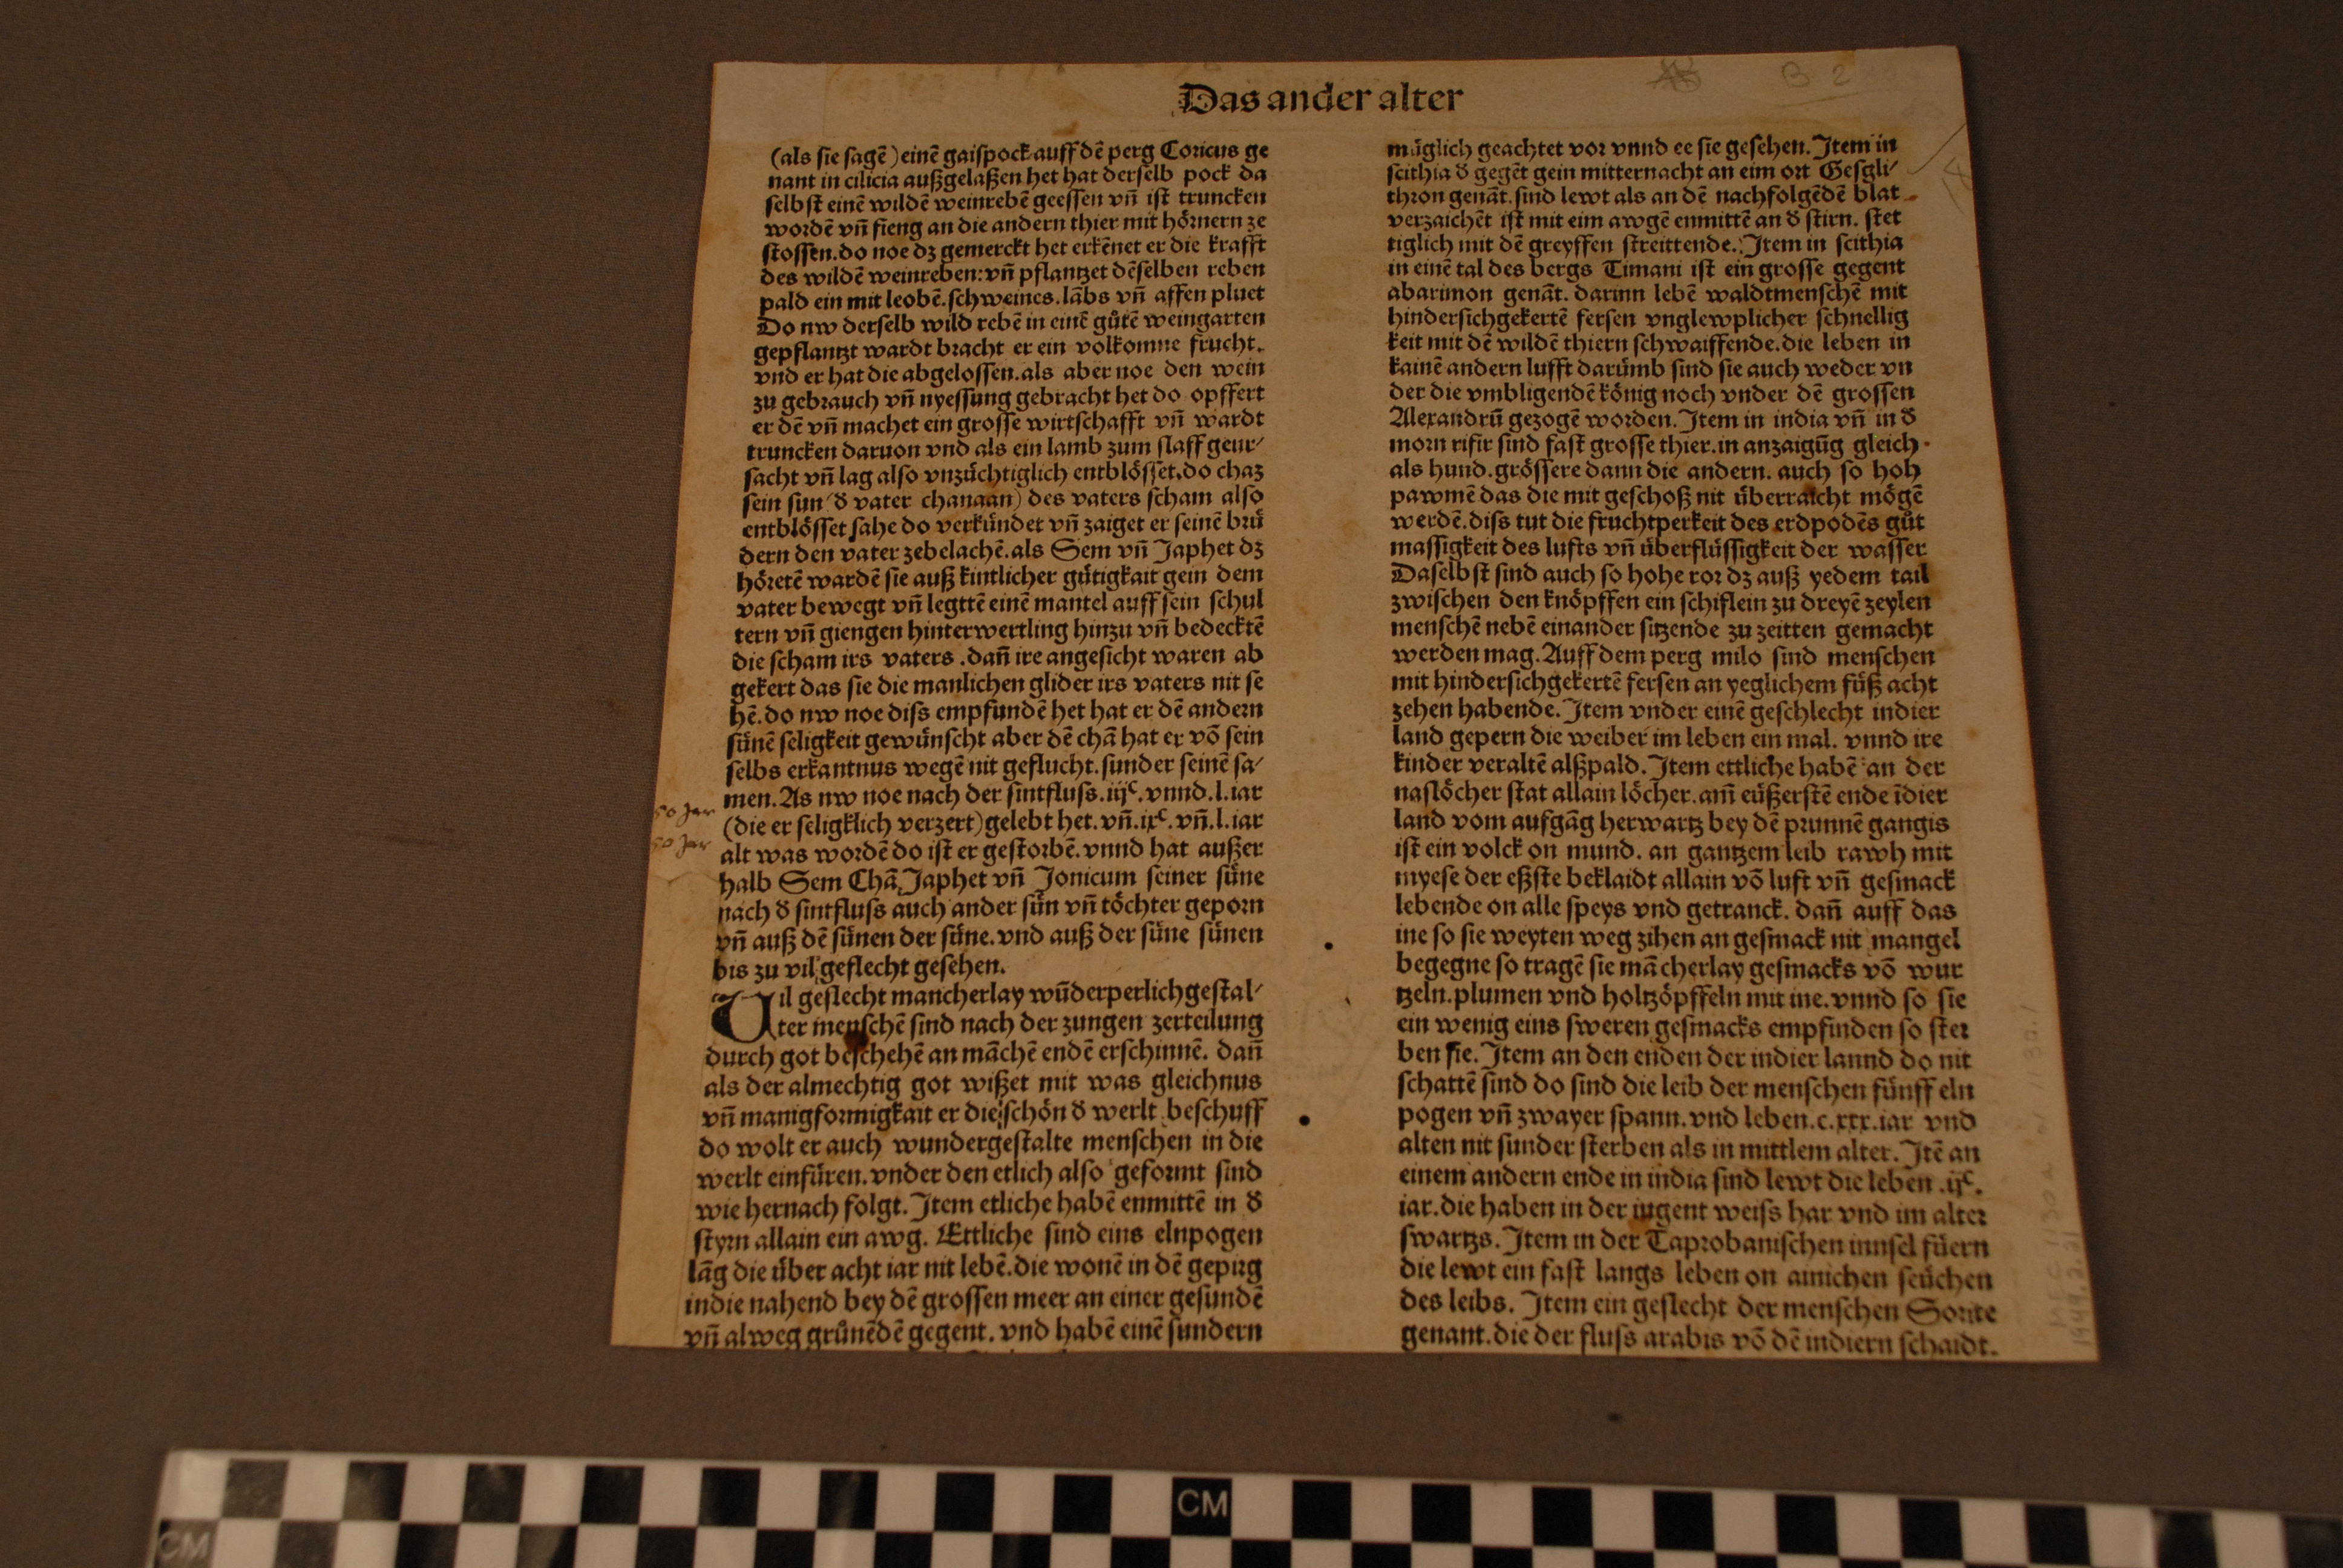 Das ander alter
B 2
(als sie sagē) einē gaispock auff dē perg Coricus ge
nant in cilicia außgelaßen het hat derselb pock da
selbst einē wildē weinrebē geessen vñ ist truncken
wordē vñ fieng an die andern thier mit hörnern ze
stossen. do noe dz gemerckt het erkēnet er die krafft
des wildē weinreben: vñ pflantzet dēselben reben
pald ein mit leobē. schweines. lābs vñ affen pluet
Do nw derselb wild rebē in einē gůtē weingarten
gepflantzt wardt bracht er ein volkomne frucht.
vnd er hat die abgelossen. als aber noe den wein
zu gebrauch vñ nyessung gebracht het do opffert
er dē vñ machet ein grosse wirtschafft vñ wardt
truncken daruon vnd als ein lamb zum slaff geur/
sacht vñ lag also vnzüchtiglich entblösset. do chaz
sein sun (d̕ vater chanaan) des vaters scham also
entblösset sahe do verkündet vñ zaiget er seinē brü
dern den vater zebelachē. als Sem vñ Japhet dz
höretē wardē sie auß kintlicher gütigkait gein dem
vater bewegt vñ legttē einē mantel auff sein schul
tern vñ giengen hinterwertling hinzu vñ bedecktē
die scham irs vaters . dañ ire angesicht waren ab
gekert das sie die manlichen glider irs vaters nit se
hē. do nw noe diss empfundē het hat er dē andern
sünē seligkeit gewünscht aber dē chā hat er vō sein
selbs erkantnus wegē nit geflucht. sunder seinē sa/
men. As nw noe nach der sintfluss. iijᶜ. vnnd .l. iar
(die er seligklich verzert) gelebt het. vñ. ixᶜ. vñ. l. iar
alt was wordē do ist er gestorbē. vnnd hat außer
halb Sem Chā, Japhet vñ Jonicum seiner süne
nach d̕ sintfluss auch ander sün vñ töchter geporn
vñ auß dē sünen der süne. vnd auß der süne sünen
bis zu vil geslecht gesehen.
Uil geslecht mancherlay wūderperlich gestal/
ter menschē sind nach der zungen zerteilung
durch got beschehē an māchē endē erschinnē. dañ
als der almechtig got wißet mit was gleichnus
vñ manigformigkait er die schön d̕ werlt beschuff
do wolt er auch wundergestalte menschen in die
werlt einfüren. vnder den etlich also geformt sind
wie hernach folgt. Item etliche habē enmittē in d̕
styrn allain ein awg. Ettliche sind eins elnpogen
lāg die über acht iar nit lebē. die wonē in dē gepirg
indie nahend bey dē grossen meer an einer gesundē
vñ alweg grůnēdē gegent. vnd habē einē sundern
müglich geachtet vor vnnd ee sie gesehen. Item in
scithia d̕ gegēt gein mitternacht an eim ort Gesgli/
thron genāt. sind lewt als an dē nachfolgēdē blat
verzaichēt ist mit eim awgē enmittē an d̕ stirn. stet
tiglich mit dē greyffen streittende. Item in scithia
in einē tal des bergs Timani ist ein grosse gegent
abarimon genāt. darinn lebē waldtmenschē mit
hindersichgekertē fersen vnglewplicher schnellig
keit mit dē wildē thiern schwaiffende. die leben in
kainē andern lufft darümb sind sie auch weder vn
der die vmbligendē könig noch vnder dē grossen
Alexandrū gezogē worden. Item in india vñ in d̕
morn rifir sind fast grosse thier. in anzaigūg gleich
als hund. grössere dann die andern. auch so hoh
pawmē das die mit geschoß nit überraicht mögē
werdē. diss tut die fruchtperkeit des erdpodēs gůt
massigkeit des lufts vñ überflüssigkeit der wasser
Daselbst sind auch so hohe ror dz auß yedem tail
zwischen den knöpffen ein schiflein zu dreyē zeylen
menschē nebē einander sitzende zu zeitten gemacht
werden mag. Auff dem perg milo sind menschen
mit hindersichgekertē fersen an yeglichem füß acht
zehen habende. Item vnder einē geschlecht indier
land gepern die weiber im leben ein mal. vnnd ire
kinder veraltē alßpald. Item ettliche habē an der
naslöcher stat allain löcher. am̄ eüßerstē ende īdier
land vom aufgāg herwartz bey dē prunnē gangis
ist ein volck on mund. an gantzem leib rawh mit
myese der eßste beklaidt allain vō luft vñ gesmack
lebende on alle speys vnd getranck. dañ auff das
ine so sie weyten weg zihen an gesmack nit mangel
begegne so tragē sie mācherlay gesmacks vō wur
tzeln. plumen vnd holtzöpffeln mit ine. vnnd so sie
ein wenig eins sweren gesmacks empfinden so ster
ben sie. Item an den enden der indier lannd do nit
schattē sind do sind die leib der menschen fünff eln
pogen vñ zwayer spann. vnd leben. c.xxx. iar vnd
alten nit sunder sterben als in mittlem alter. Itē an
einem andern ende in india sind lewt die leben .ijᶜ.
iar. die haben in der iugent weiss har vnd im alter
swartzs. Item in der Taprobanischen innsel füern
die lewt ein fast langs leben on ainichen seüchen
des leibs. Item ein geslecht der menschen Sorite
genant. die der fluss arabis vō dē indiern schaidt.
50 Jar
50 Jar
CM
CM